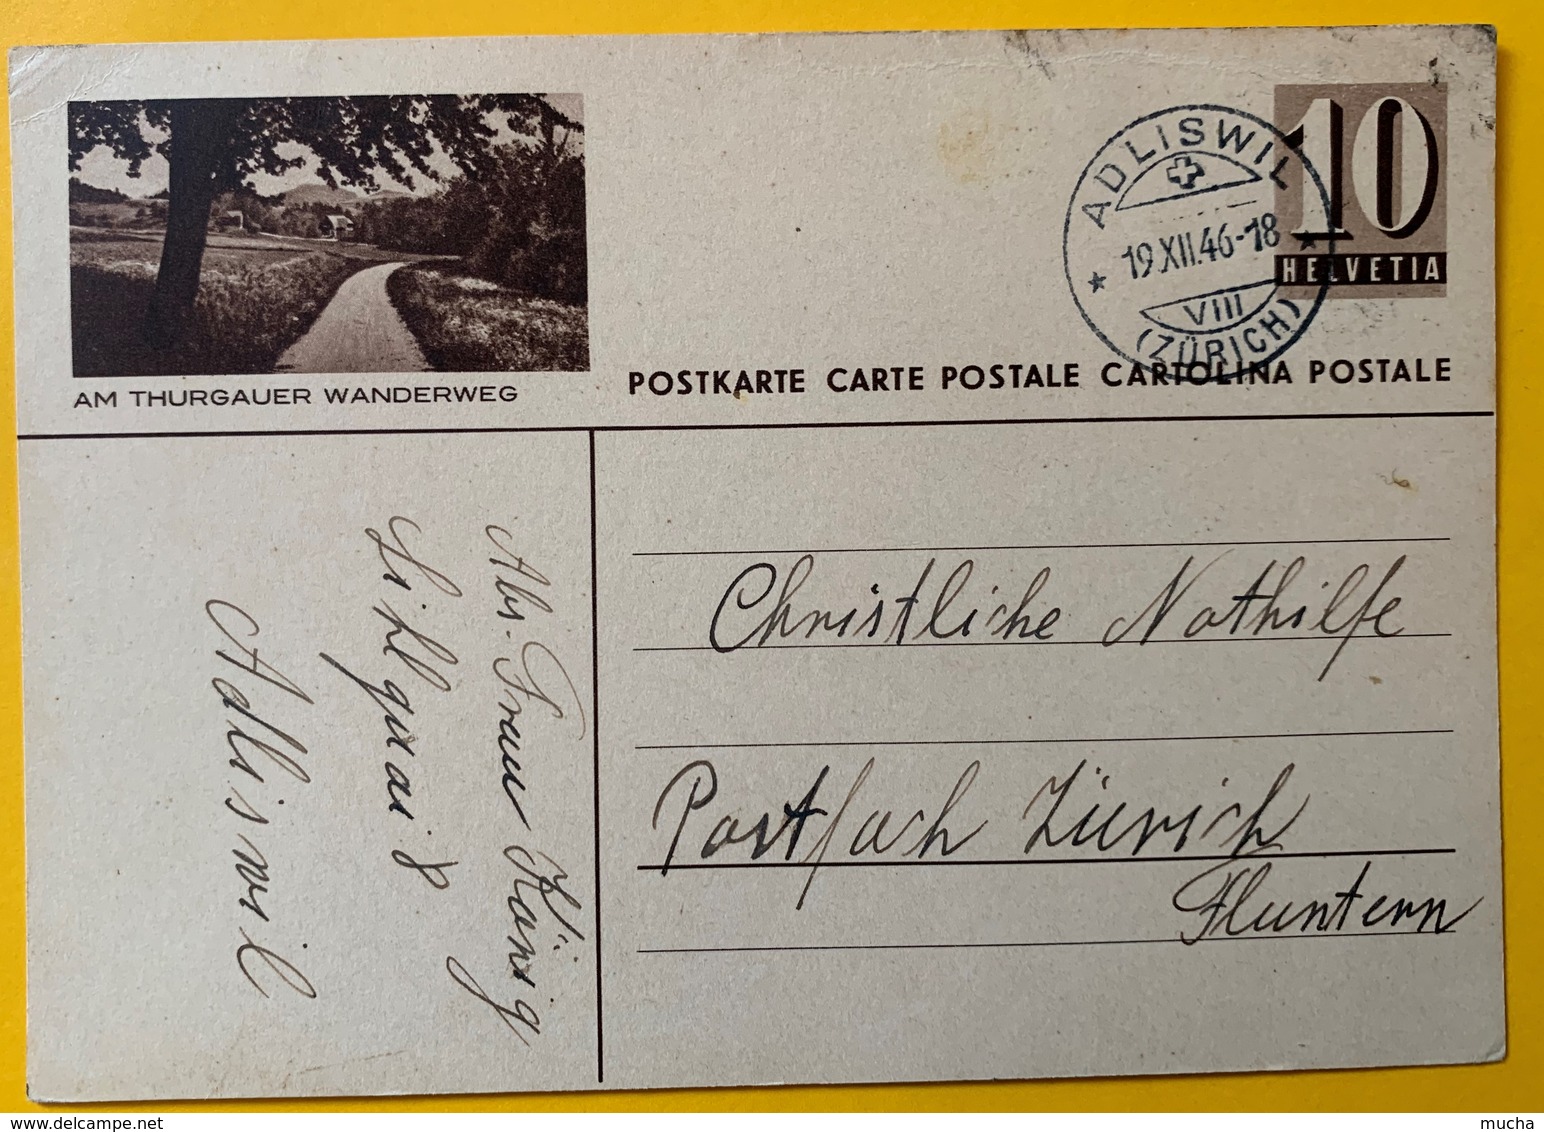 ADLISWIL
19.XII.46-18
VIII
(ZÜRICH)
10
HELVETIA
AM THURGAUER WANDERWEG
POSTKARTE CARTE POSTALE CARTOLINA POSTALE
Abs. Frau König
Sihlquai 8
Adliswil
Christliche Nothilfe
Postfach Zürich
Fluntern
mucha